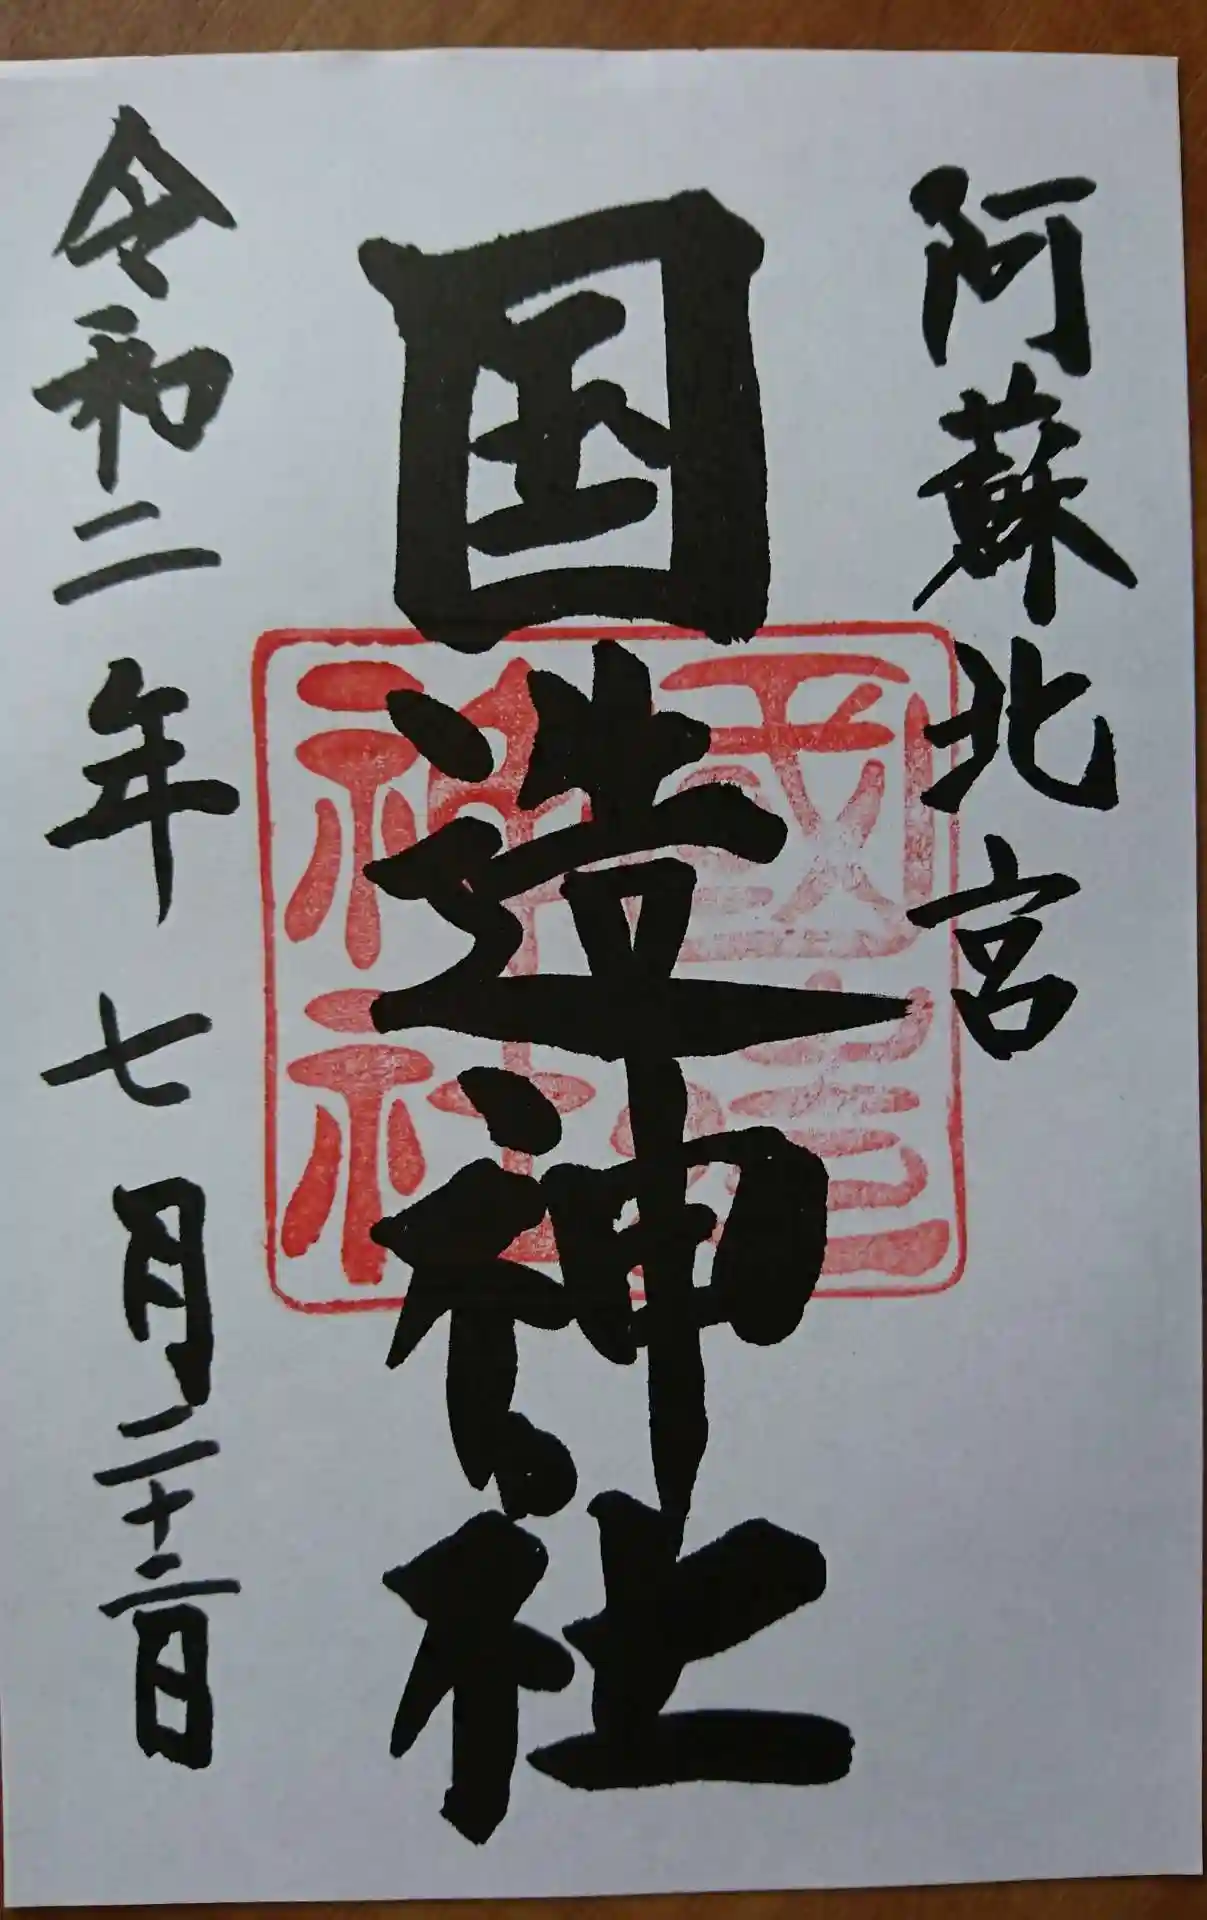 阿蘇北宮
国造神社
國造
神社
令和二年七月二十二日